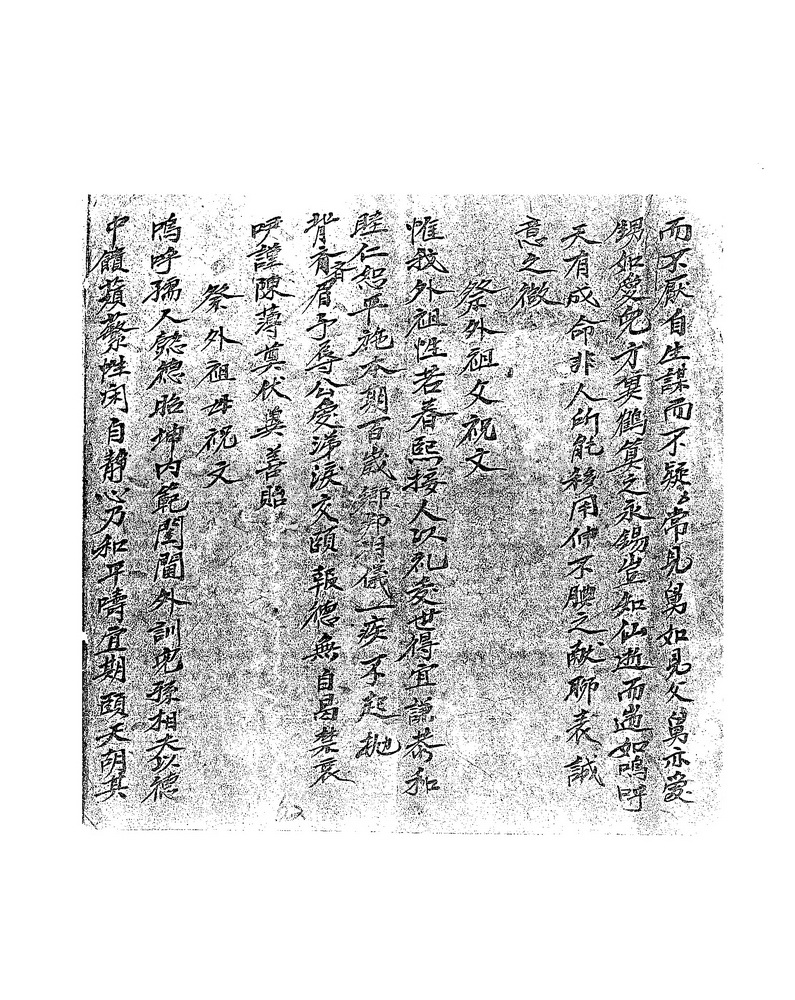 而不厭自生謀而不疑常見舅如見父舅亦愛
甥如愛兒方冀鶴算之永錫豈知仙逝而遄如嗚呼
天有成命非人所能移用伸不腆之献聊表誠
意之微
祭外祖父祝文
惟我外祖性若春熙接人以礼處世得宜謙恭和
睦仁恕平施本期百歲鄉邦有儀一疾不起抛
背齊眉予辱公愛涕淚交頤報德無自曷禁哀
吚謹陳薄奠伏冀善貽
祭外祖母祝文
嗚呼孺人懿德昭坤内範閨閫外訓兒孫相夫以德
中饋蘋蘩性閑自靜心乃和平疇宜期頤天胡其